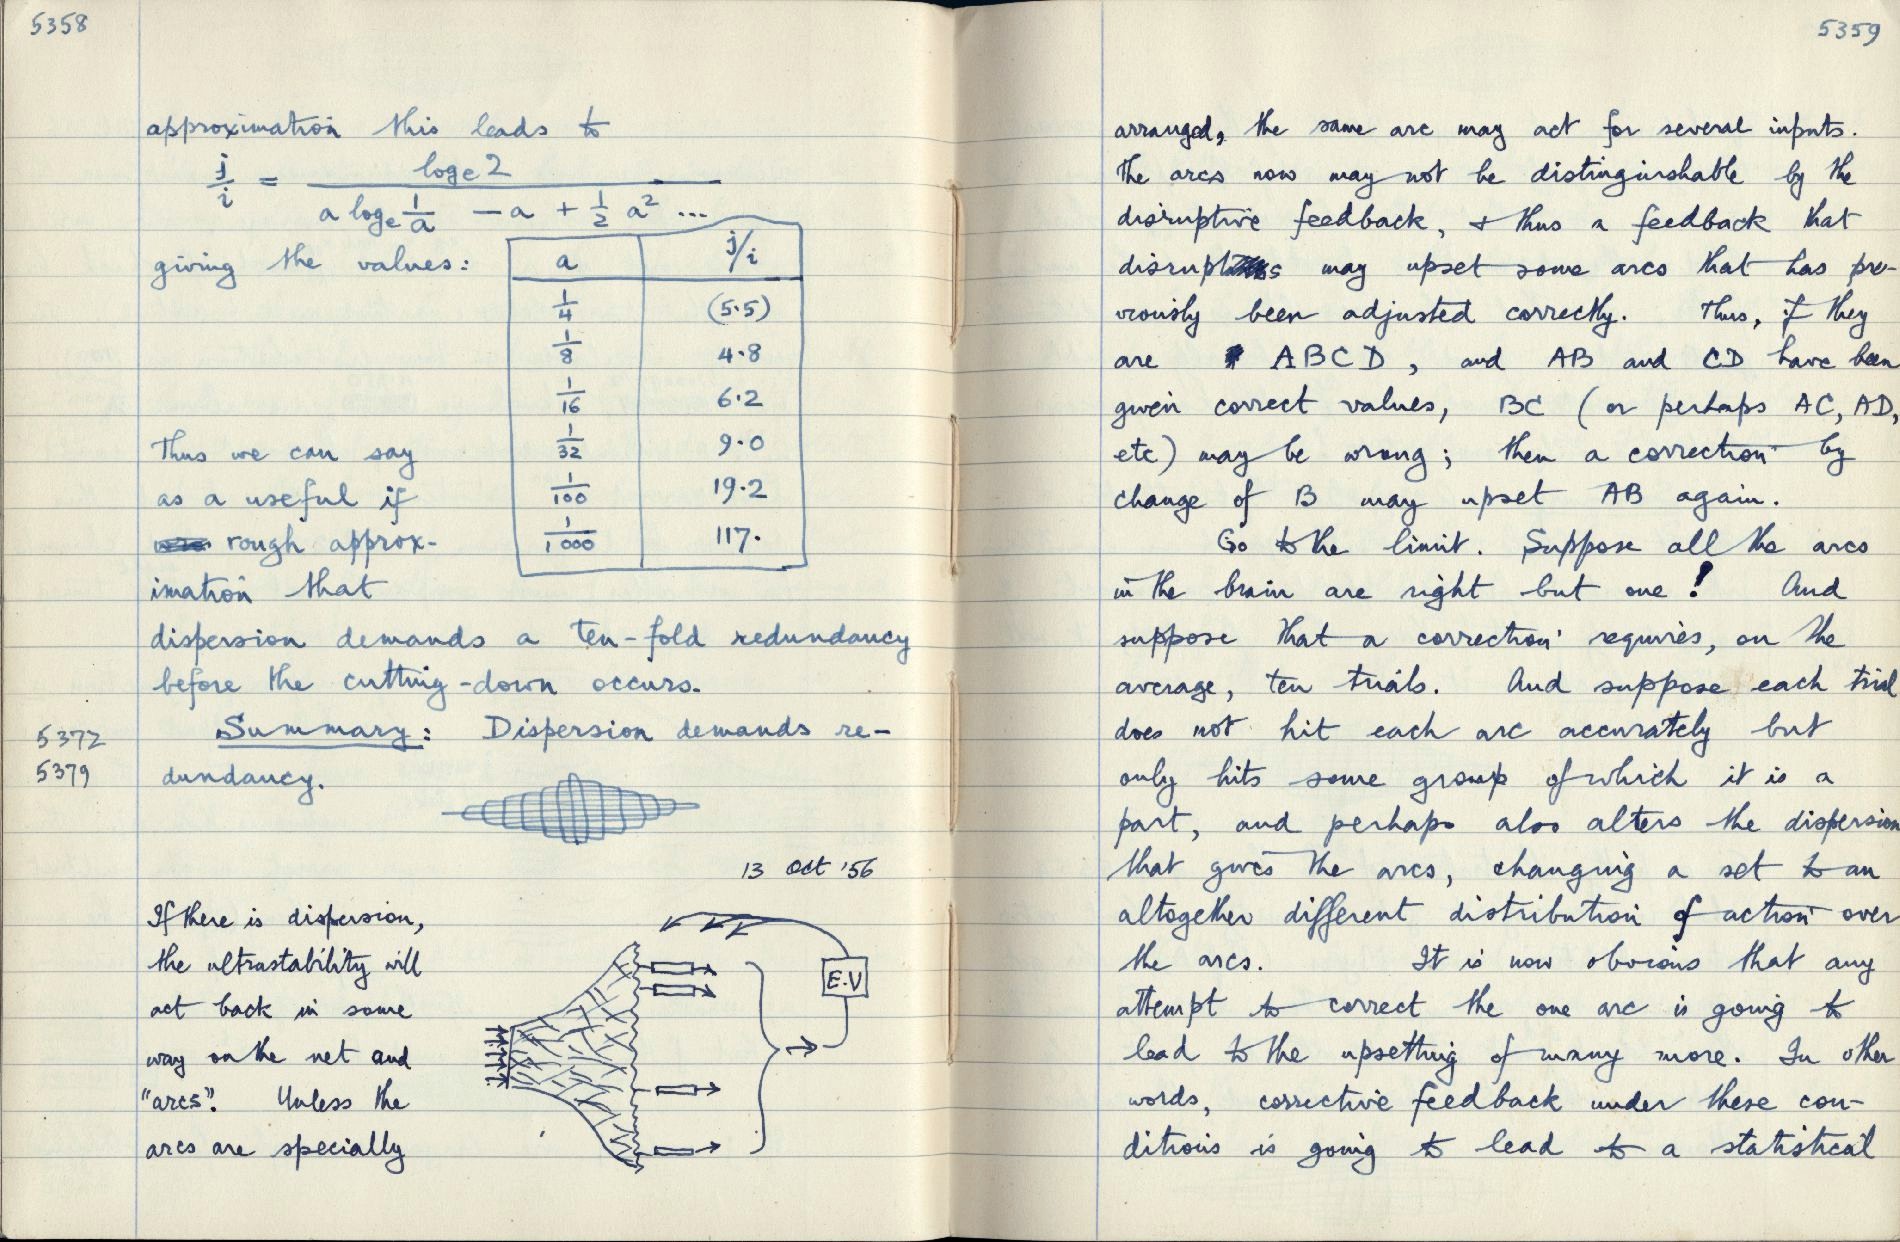 5358
approximation this leads to
j/i = logₑ2 / (a logₑ 1/a − a + 1/2 a² ...)
giving the values:
a j/i
1/4 (5·5)
1/8 4·8
1/16 6·2
1/32 9·0
1/100 19·2
1/1000 117·
Thus we can say
as a useful if
rough approx-
imation that
dispersion demands a ten-fold redundancy
before the cutting-down occurs.
Summary: Dispersion demands re-
dundancy.
5372
5379
13 Oct '56
If there is dispersion,
the ultrastability will
act back in some
way on the net and
"arcs". Unless the
arcs are specially
E.V
5359
arranged, the same arc may act for several inputs.
The arcs now may not be distinguishable by the
disruptive feedback, + thus a feedback that
disrupts may upset some arcs that has pre-
viously been adjusted correctly. Thus, if they
are ABCD, and AB and CD have been
given correct values, BC (or perhaps AC, AD,
etc) may be wrong; then a correction by
change of B may upset AB again.
Go to the limit. Suppose all the arcs
in the brain are right but one! And
suppose that a correction requires, on the
average, ten trials. And suppose each trial
does not hit each arc accurately but
only hits some group of which it is a
part, and perhaps also alters the dispersion
that gives the arcs, changing a set to an
altogether different distribution of action over
the arcs. It is now obvious that any
attempt to correct the one arc is going to
lead to the upsetting of many more. In other
words, corrective feedback under these con-
ditions is going to lead to a statistical